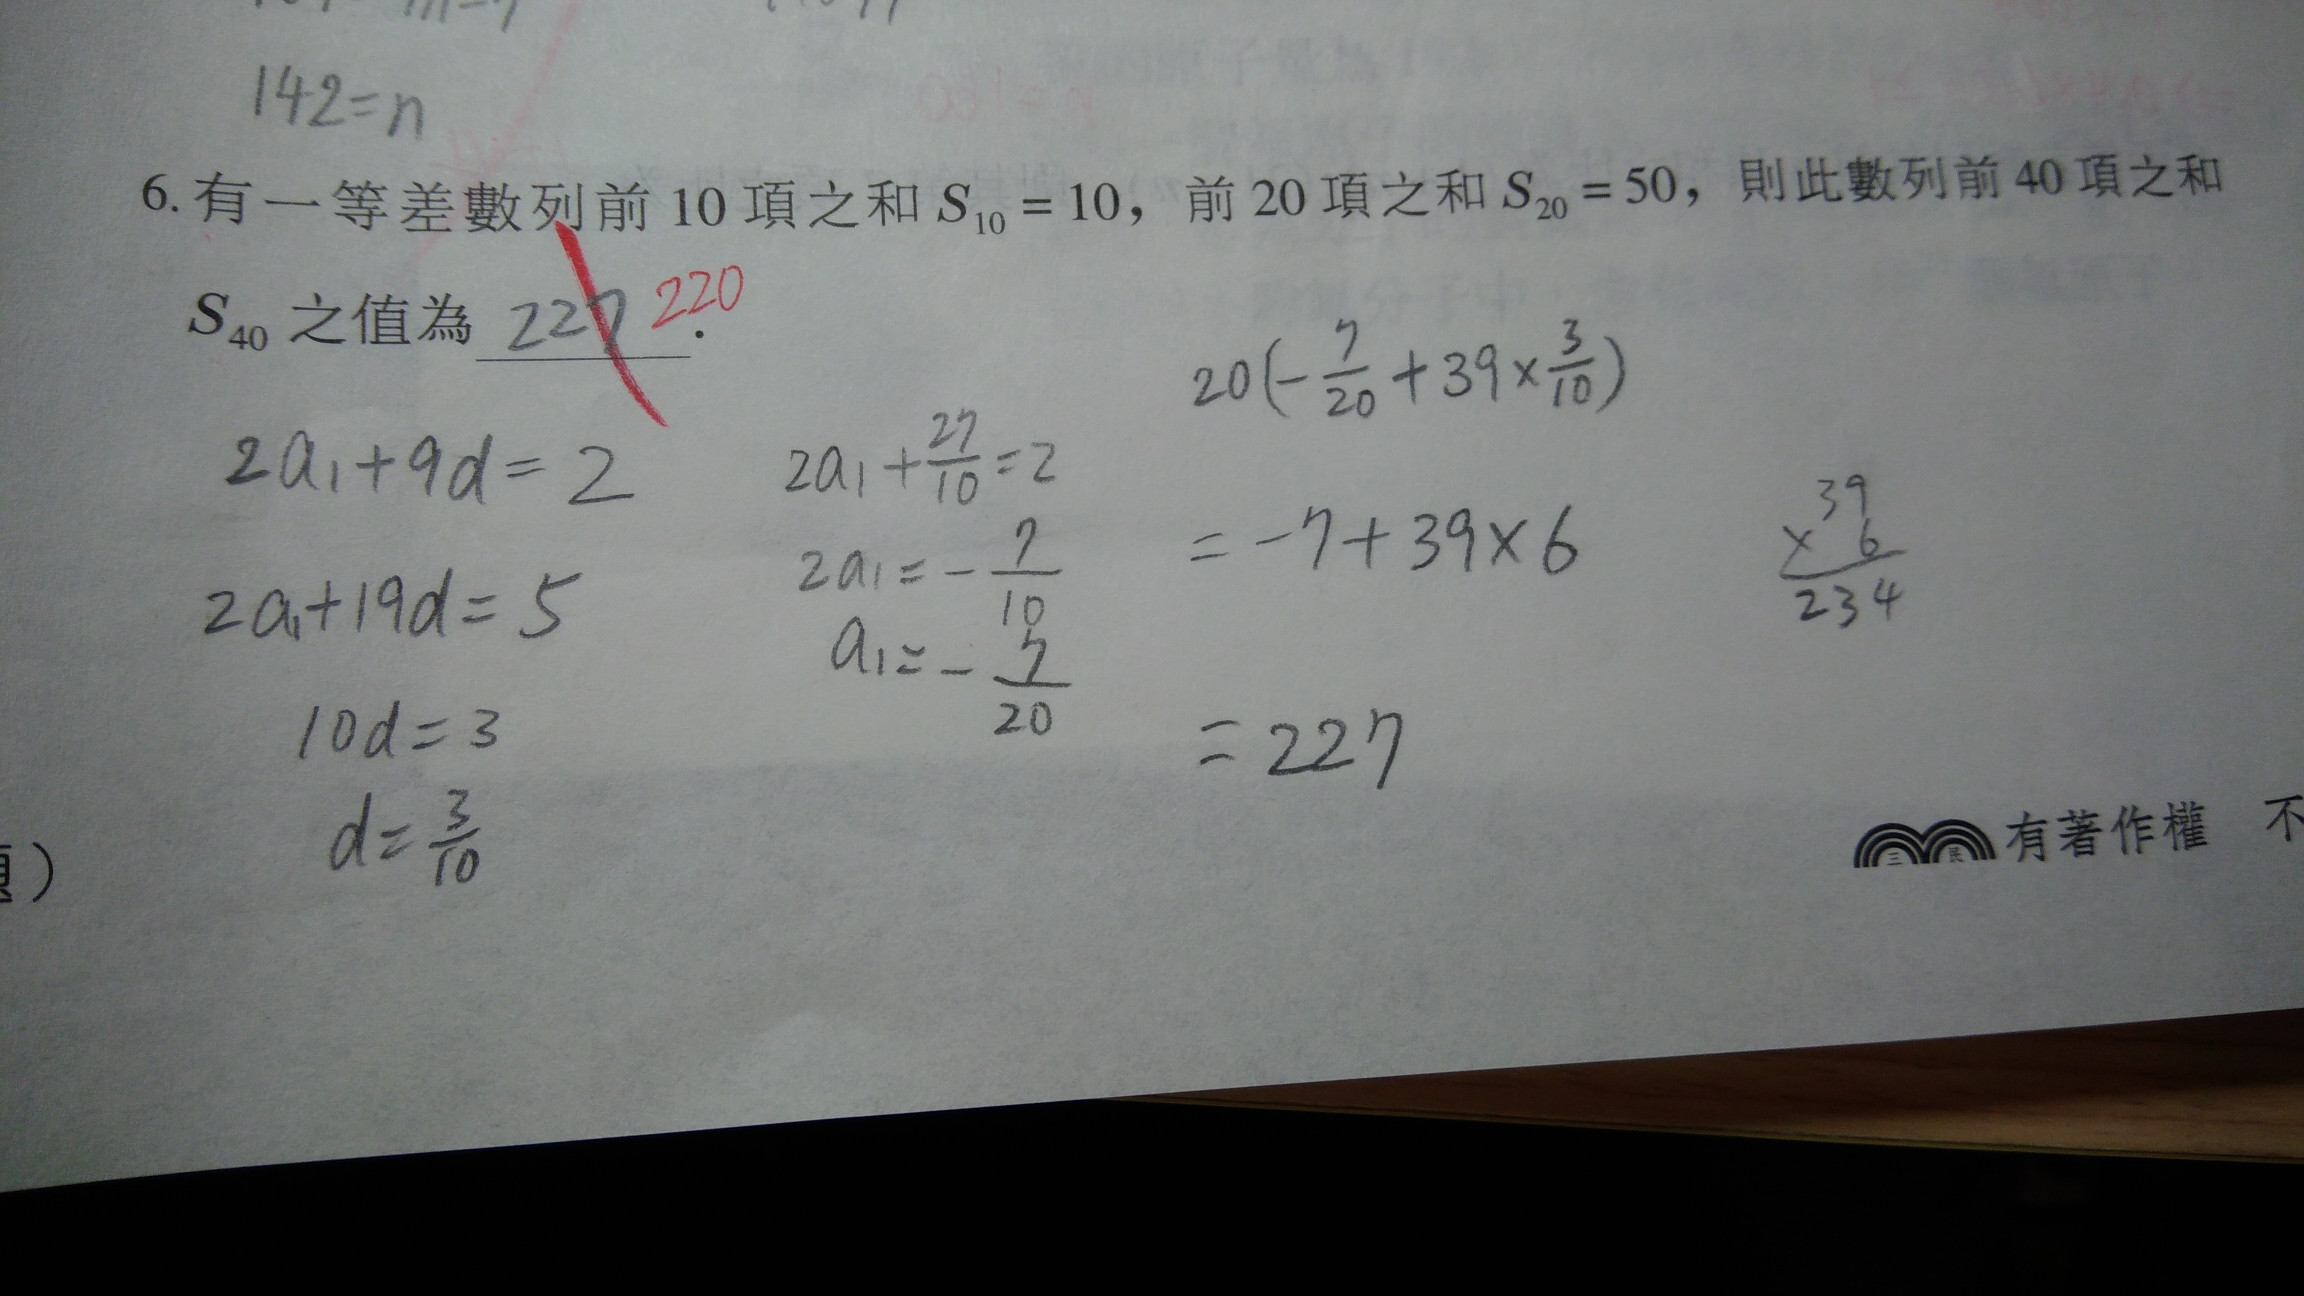 142=n
6. 有一等差數列前 10 項之和 S₁₀ = 10, 前 20 項之和 S₂₀ = 50, 則此數列前 40 項之和
S₄₀ 之值為 227 220.
2a₁+9d=2
2a₁+19d=5
10d=3
d=3/10
2a₁+27/10=2
2a₁=-7/10
a₁=-7/20
20(-7/20+39×3/10)
=-7+39×6
=227
39
×6
234
三民 有著作權 不
題)